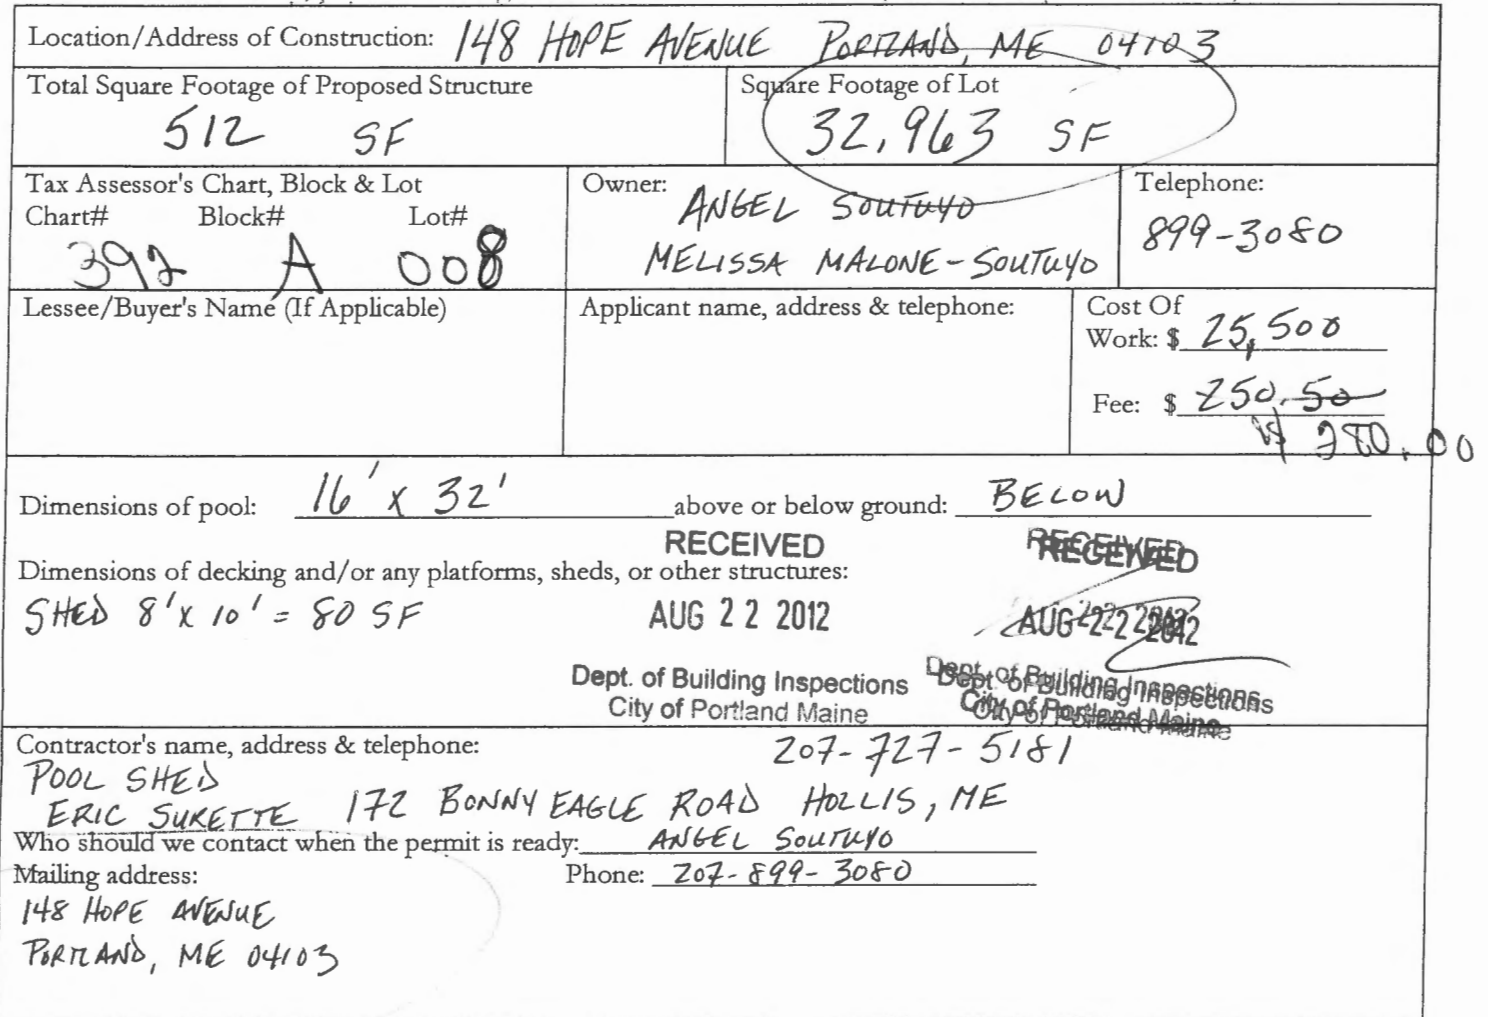 Location/Address of Construction: 148 HOPE AVENUE PORTLAND, ME 04103
Total Square Footage of Proposed Structure
512 SF
Square Footage of Lot
32,963 SF
Tax Assessor's Chart, Block & Lot
Chart# Block# Lot#
392 A 008
Owner: ANGEL SOUTUYO
MELISSA MALONE-SOUTUYO
Telephone:
899-3080
Lessee/Buyer's Name (If Applicable)
Applicant name, address & telephone:
Cost Of
Work: $ 25,500
Fee: $ 250.50
280.00
Dimensions of pool: 16' x 32' above or below ground: BELOW
RECEIVED
RECEIVED
Dimensions of decking and/or any platforms, sheds, or other structures:
SHED 8' x 10' = 80 SF
AUG 22 2012
AUG 22 2012
Dept. of Building Inspections
City of Portland Maine
Dept. of Building Inspections
City of Portland Maine
Contractor's name, address & telephone: 207-727-5181
POOL SHED
ERIC SURETTE 172 BONNY EAGLE ROAD HOLLIS, ME
Who should we contact when the permit is ready: ANGEL SOUTUYO
Mailing address: Phone: 207-899-3080
148 HOPE AVENUE
PORTLAND, ME 04103